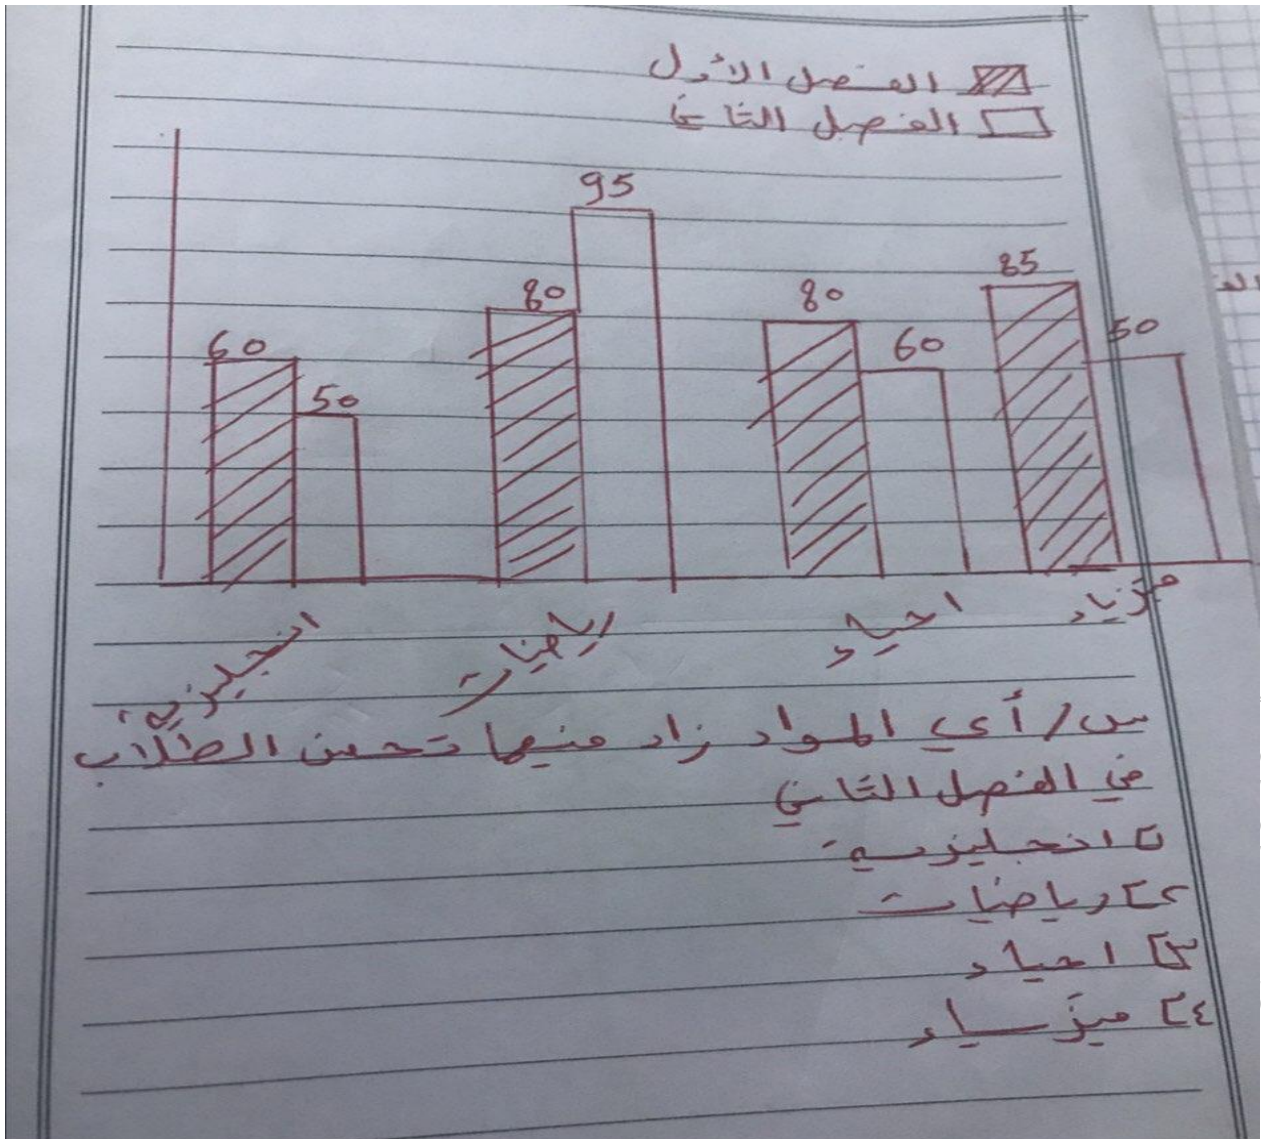 الفصل الأول
الفصل الثاني
95
85
80
80
50
60
60
50
انجليزية
رياضيات
احياء
فيزياء
س/ أي المواد زاد فيها تحسن الطلاب
في الفصل الثاني
١] انجليزية
٢] رياضيات
٣] احياء
٤] فيزياء